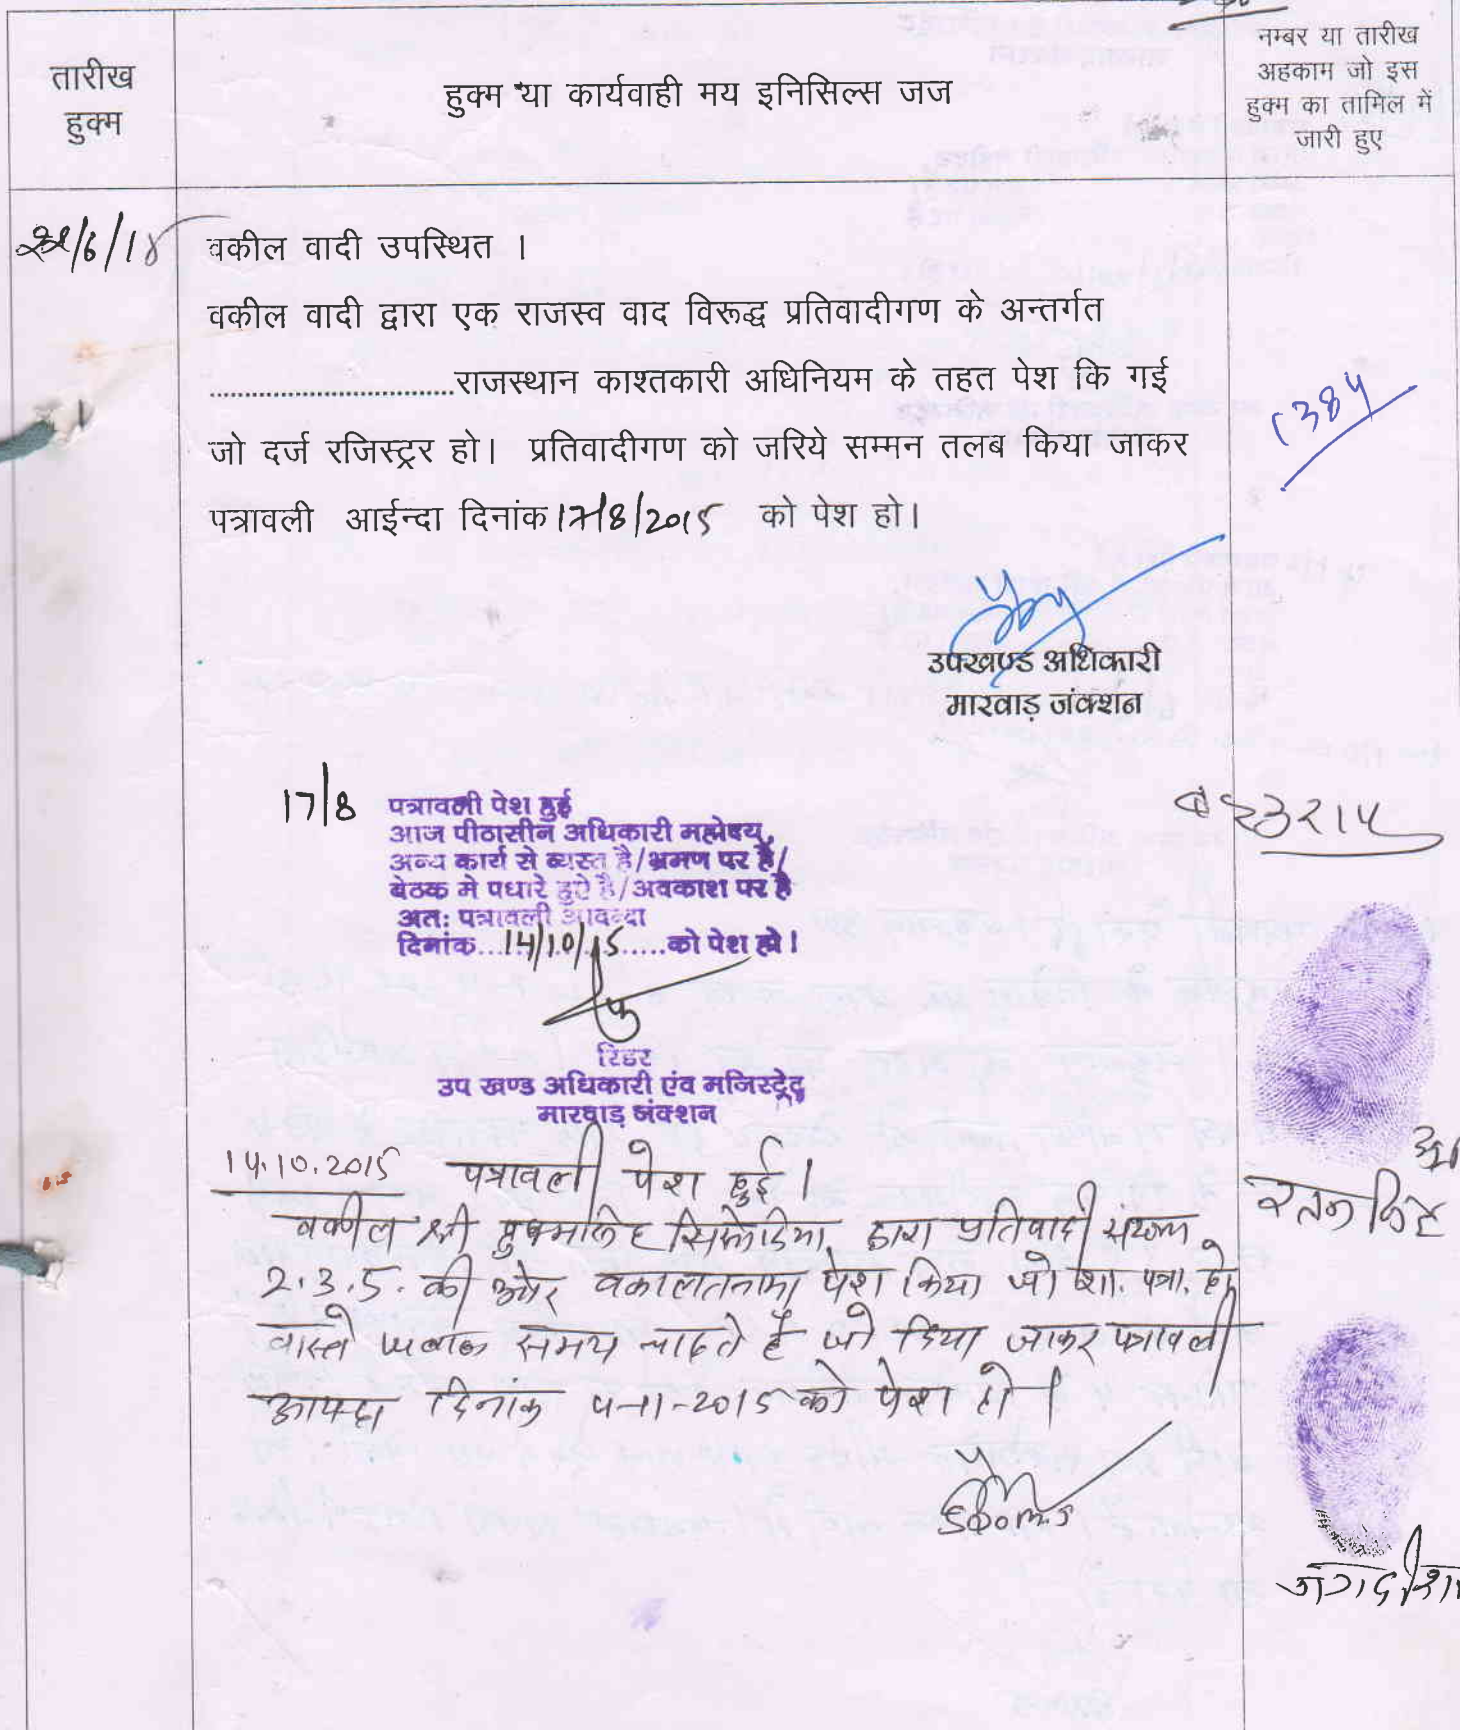 तारीख
हुक्म
हुक्म या कार्यवाही मय इनिसिल्स जज
नम्बर या तारीख
अहकाम जो इस
हुक्म का तामिल में
जारी हुए
वकील वादी उपस्थित ।
वकील वादी द्वारा एक राजस्व वाद विरूद्ध प्रतिवादीगण के अन्तर्गत
...................................राजस्थान काश्तकारी अधिनियम के तहत पेश कि गई
1384
जो दर्ज रजिस्ट्रर हो। प्रतिवादीगण को जरिये सम्मन तलब किया जाकर
पत्रावली आईन्दा दिनांक 17/8/2015 को पेश हो।
उपखण्ड अधिकारी
मारवाड़ जंक्शन
17/8
पत्रावली पेश हुई
आज पीठासीन अधिकारी महोदय,
अन्य कार्य से व्यस्त है/भ्रमण पर है/
बेठक मे पधारे हुऐ है/अवकाश पर है
अतः पत्रावली आवन्दा
दिनांक....14/10/15.....को पेश हो।
रिडर
उप खण्ड अधिकारी एंव मजिस्ट्रेट
मारवाड़ जंक्शन
14.10.2015 पत्रावली पेश हुई।
वकील श्री सिसोदिया द्वारा प्रतिवादी संख्या
2.3.5. की ओर वकालतनामा पेश किया जो शा. पत्रा. हो
वास्ते जवाब समय चाहते है जो दिया जाकर पत्रावली
आयन्दा दिनांक 4-11-2015 को पेश हो।
रतनसिंह
जगदीश